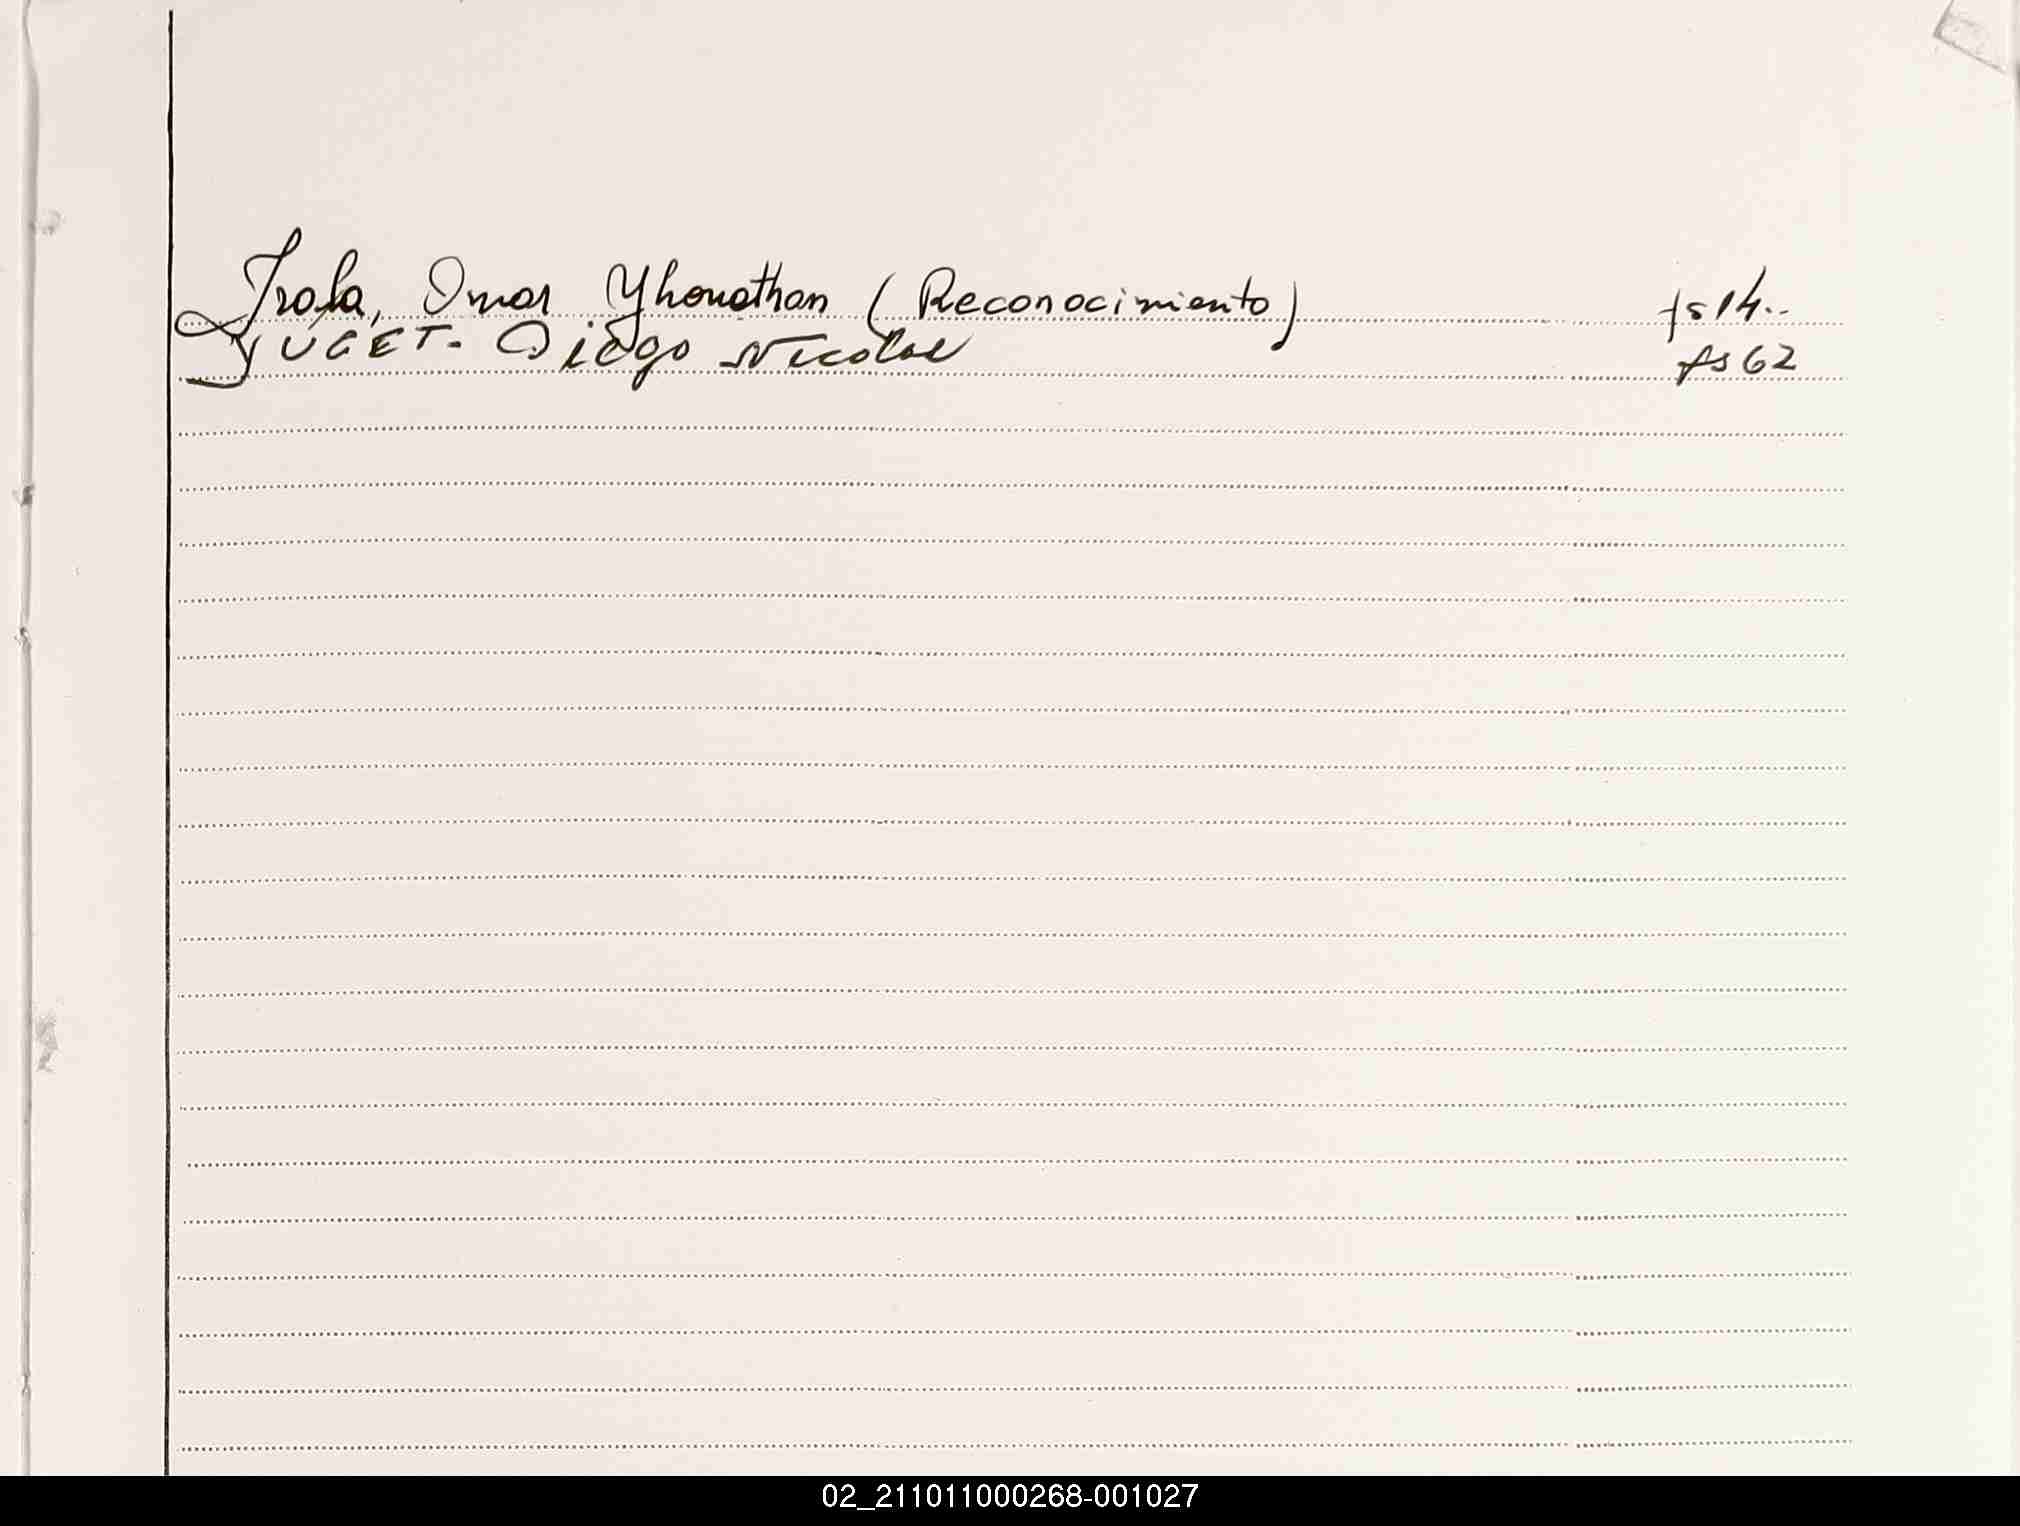 Irala, Omar Yhonathan (Reconocimiento) fs 14..
YUGET. Diego Nicolas fs 62
02_211011000268-001027